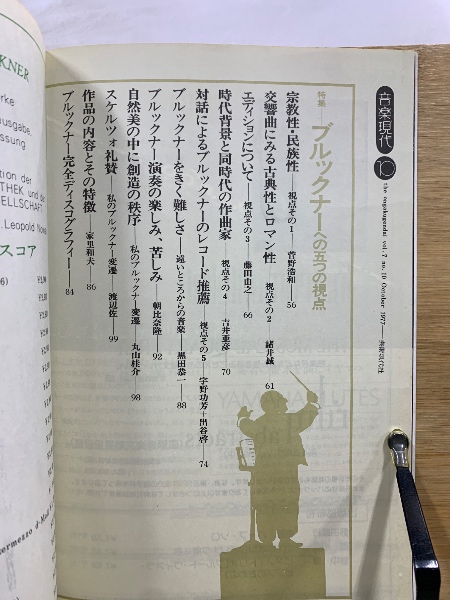 音楽現代 10
the ongakugendai vol. 7 no. 10 October 1977——芸術現代社
特集——ブルックナーへの五つの視点
宗教性・民族性 視点その1——菅野浩和——56
交響曲にみる古典性とロマン性 視点その2——諸井誠 61
エディションについて——視点その3——藤田由之——66
時代背景と同時代の作曲家 視点その4——吉井亜彦 70
対話によるブルックナーのレコード推薦 視点その5——宇野功芳+出谷啓——74
ブルックナーをきく難しさ——遠いところからの音楽——黒田恭一——88
ブルックナー演奏の楽しみ、苦しみ——朝比奈隆——92
自然美の中に創造の秩序 私のブルックナー変遷 丸山桂介 98
スケルツォ礼賛——私のブルックナー変遷——渡辺佐——99
作品の内容とその特徴——家里和夫——86
ブルックナー完全ディスコグラフィー——84
KNER
rke
ausgabe,
ssung
tion der
THEK und der
ELLSCHAFT
Leopold Nowa
スコア